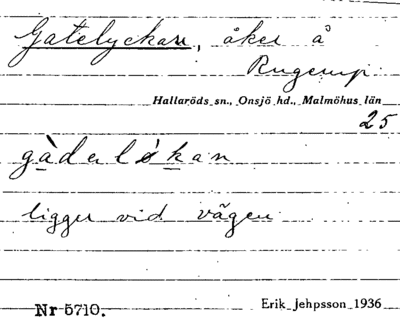 Gatelyckan, åker å
Rugerup
Hallaröds sn., Onsjö hd., Malmöhus län
25
gàdeløkan
ligger vid vägen
Nr 5710. Erik Jehpsson 1936